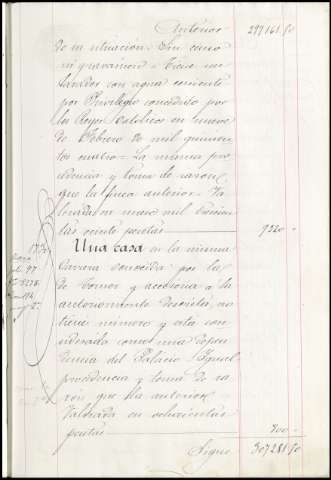 Anterior 297161 50
de su situacion. Sin censo
ni gravamen. Tiene un
lavadero con agua corriente
por Privilegio concedido por
los Reyes Catolicos en nueve
de Febrero de mil quinien
tos cuatro = La misma pro
cedencia y toma de razon,
que la finca anterior. Va
lorada en nueve mil trescien
tas veinte pesetas 9320
Una casa en la misma
Carrera conocida por la
de Torno y accesoria a la
anteriormente descrita, no
tiene número y está con
siderada como una depen
dencia del Palacio. Igual
procedencia y toma de ra
zon que la anterior.
Valorada en ochocientas
pesetas 800
Sigue 307281 50